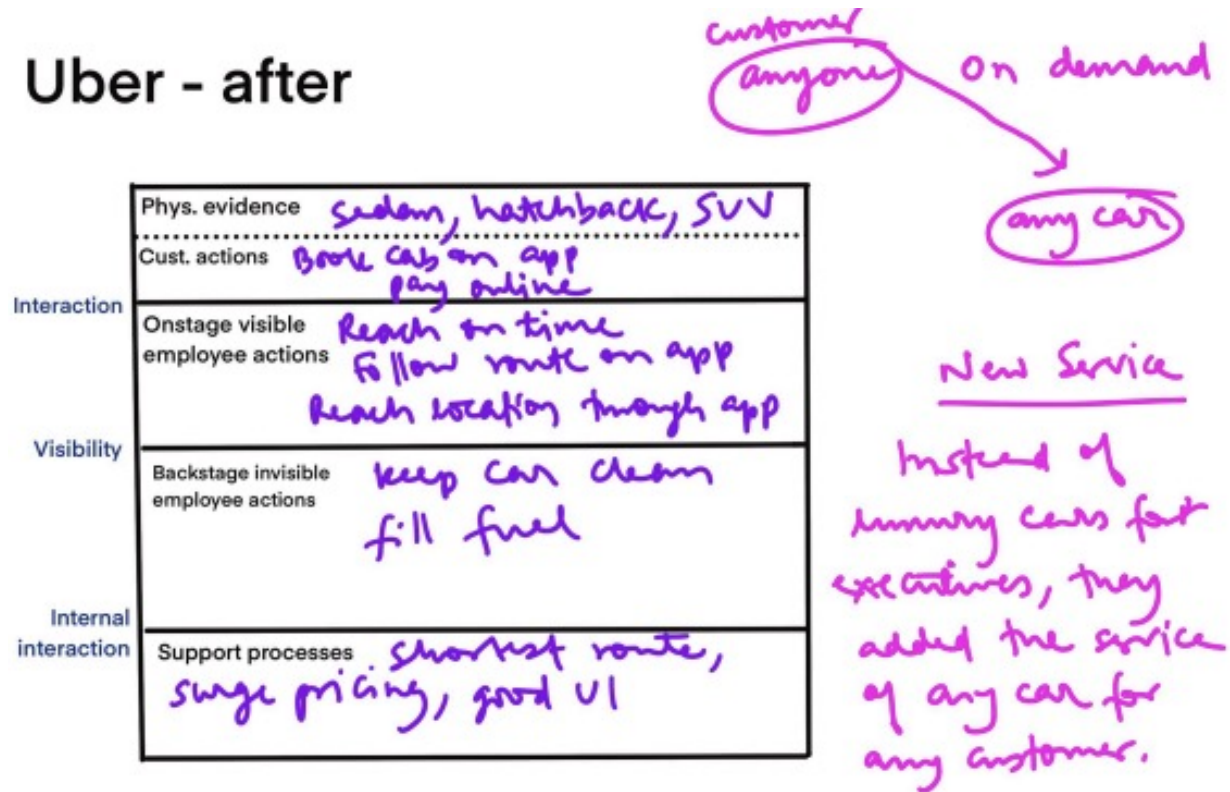 Uber - after
customer
anyone
on demand
any car
Phys. evidence sedan, hatchback, SUV
Cust. actions Book cab on app
pay online
Interaction
Onstage visible
employee actions
Reach on time
Follow route on app
Reach location through app
Visibility
Backstage invisible
employee actions
keep car clean
fill fuel
Internal
interaction
Support processes shortest route,
surge pricing, good UI
New Service
Instead of
luxury cars for
executives, they
added the service
of any car for
any customer.